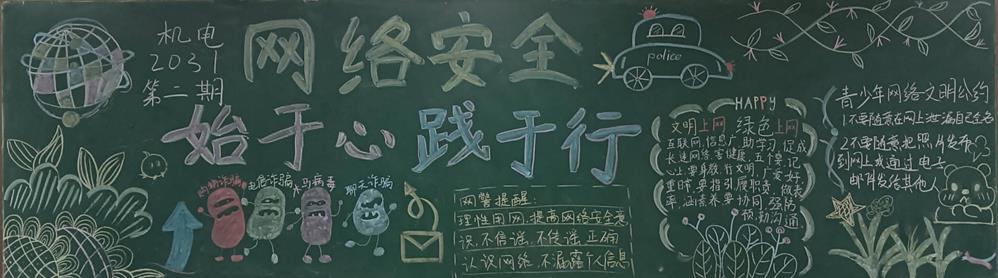 机电
2031
第二期
网络安全
始于心 践于行
police
购物诈骗
电信诈骗
木马病毒
聊天诈骗
网警提醒:
理性用网,提高网络安全意
识,不信谣,不传谣,正确
认识网络,不漏露个人信息
HAPPY
文明上网 绿色上网
互联网,信息广,助学习,促成
长,迷网络,害健康,五个要,记
心上,要单独,行文明,广爱好,
重时,要指引,履职责,做表
率,涵素养,要协同,强防
预,勤沟通
青少年网络文明公约
1.不要随意在网上泄漏自己全名
2.不要随意把照片发布
到网上或通过电子
邮件发给其他人